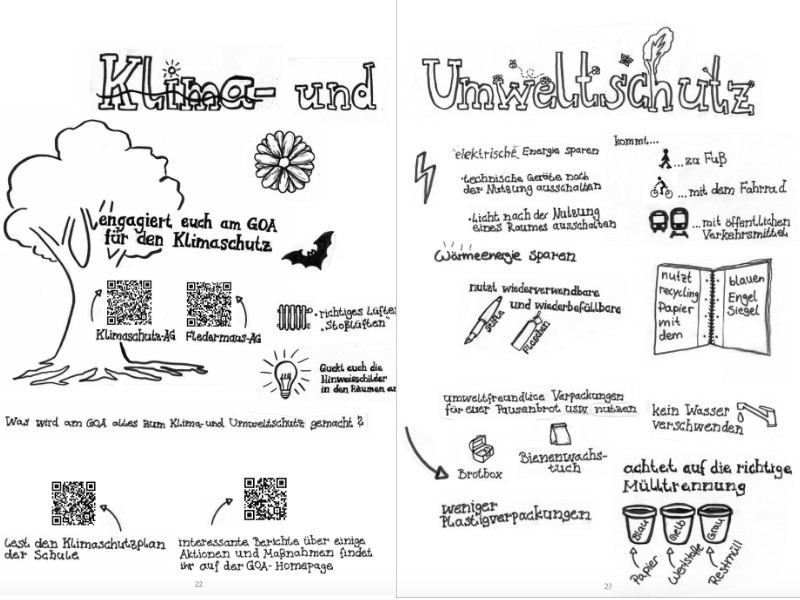 Klima- und
engagiert euch am GOA
für den Klimaschutz
Klimaschutz-AG
Fledermaus-AG
• richtiges Lüften
"Stoßlüften"
Guckt euch die
Hinweisschilder
in den Räumen an
Was wird am GOA alles zum Klima- und Umweltschutz gemacht?
Lest den Klimaschutzplan
der Schule
interessante Berichte über einige
Aktionen und Maßnahmen findet
ihr auf der GOA-Homepage
22
Umweltschutz
elektrische Energie sparen
• technische Geräte nach
der Nutzung ausschalten
• Licht nach der Nutzung
eines Raumes ausschalten
Wärmeenergie sparen
kommt...
...zu Fuß
...mit dem Fahrrad
...mit öffentlichen
Verkehrsmittel
nutzt wiederverwendbare
und wiederbefüllbare
Stifte
Flaschen
nutzt
recycling
Papier
mit
dem
blauen
Engel
Siegel
umweltfreundlice Verpackungen
für euer Pausenbrot usw. nutzen
Brotbox
Bienenwachs-
tuch
weniger
Plastigverpackungen
kein Wasser
verschwenden
achtet auf die richtige
Mülltrennung
Blau
Gelb
Grau
Papier
Wertstoffe
Restmüll
23